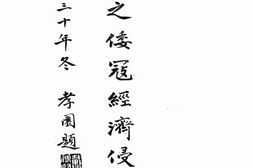 之倭寇經濟侵
三十年冬 孝園題